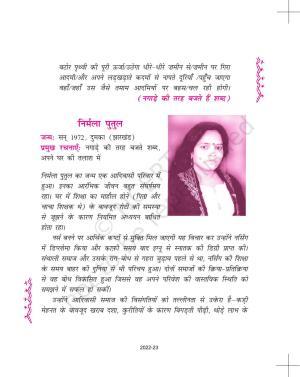 बटोर पृथ्वी की पूरी ऊर्जा/उठेगा धीरे-धीरे ज़मीन से/ज़मीन पर गिरा
आदमी/और अपने लड़खड़ाते कदमों से नापते दूरियाँ /पहुँच जाएगा
वहाँ/जहाँ उस जैसे तमाम आदमियों पर बहस/चल रही होगी।
(नगाड़े की तरह बजते हैं शब्द)
निर्मला पुतुल
जन्म: सन् 1972, दुमका (झारखंड)
प्रमुख रचनाएँ: नगाड़े की तरह बजते शब्द,
अपने घर की तलाश में
निर्मला पुतुल का जन्म एक आदिवासी परिवार में
हुआ। इनका आरंभिक जीवन बहुत संघर्षमय
रहा। घर में शिक्षा का माहौल होने (पिता और
चाचा शिक्षक थे) के बावजूद रोटी की समस्या
से जूझने के कारण नियमित अध्ययन बाधित
होता रहा।
नर्स बनने पर आर्थिक कष्टों से मुक्ति मिल जाएगी यह विचार कर उन्होंने नर्सिंग
में डिप्लोमा किया और काफ़ी समय बाद इग्नू से स्नातक की डिग्री प्राप्त की।
संथाली समाज और उसके राग-बोध से गहरा जुड़ाव पहले से था, नर्सिंग की शिक्षा
के समय बाहर की दुनिया से भी परिचय हुआ। दोनों समाजों की क्रिया-प्रतिक्रिया
से वह बोध विकसित हुआ जिससे वह अपने परिवेश की वास्तविक स्थिति को
समझने में सफल हो सकीं।
उन्होंने आदिवासी समाज की विसंगतियों को तल्लीनता से उकेरा है–कड़ी
मेहनत के बावजूद खराब दशा, कुरीतियों के कारण बिगड़ती पीढ़ी, थोड़े लाभ के
2022-23